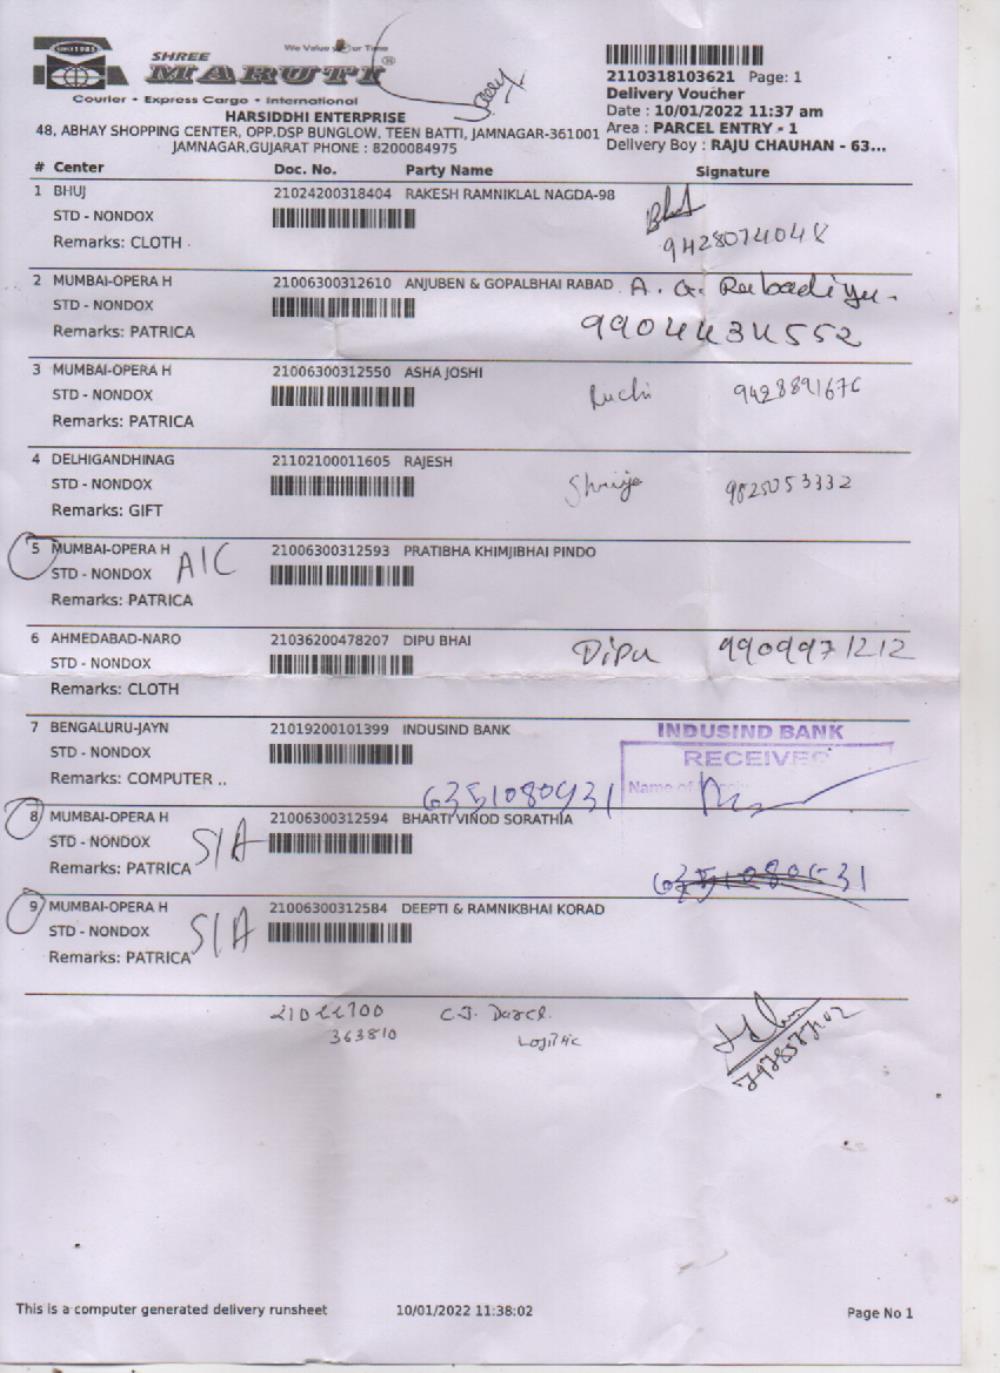 SINCE 1985
We Value Your Time
SHREE
MARUTI®
Courier • Express Cargo • International
HARSIDDHI ENTERPRISE
48, ABHAY SHOPPING CENTER, OPP.DSP BUNGLOW, TEEN BATTI, JAMNAGAR-361001
JAMNAGAR,GUJARAT PHONE : 8200084975
2110318103621 Page: 1
Delivery Voucher
Date : 10/01/2022 11:37 am
Area : PARCEL ENTRY - 1
Delivery Boy : RAJU CHAUHAN - 63...
# Center Doc. No. Party Name Signature
1 BHUJ 21024200318404 RAKESH RAMNIKLAL NAGDA-98
STD - NONDOX
Remarks: CLOTH
9428074048
2 MUMBAI-OPERA H 21006300312610 ANJUBEN & GOPALBHAI RABAD A. G. Rabadiya.
STD - NONDOX
Remarks: PATRICA 9904434552
3 MUMBAI-OPERA H 21006300312550 ASHA JOSHI
STD - NONDOX Ruchi 9428891676
Remarks: PATRICA
4 DELHIGANDHINAG 21102100011605 RAJESH
STD - NONDOX 9825053332
Remarks: GIFT
5 MUMBAI-OPERA H 21006300312593 PRATIBHA KHIMJIBHAI PINDO
STD - NONDOX A/C
Remarks: PATRICA
6 AHMEDABAD-NARO 21036200478207 DIPU BHAI Dipu 9909971212
STD - NONDOX
Remarks: CLOTH
7 BENGALURU-JAYN 21019200101399 INDUSIND BANK INDUSIND BANK
STD - NONDOX RECEIVED
Remarks: COMPUTER .. Name of
6351080931
8 MUMBAI-OPERA H 21006300312594 BHARTI VINOD SORATHIA
STD - NONDOX S/A
Remarks: PATRICA
9 MUMBAI-OPERA H 21006300312584 DEEPTI & RAMNIKBHAI KORAD
STD - NONDOX S/A
Remarks: PATRICA
363810
This is a computer generated delivery runsheet 10/01/2022 11:38:02 Page No 1